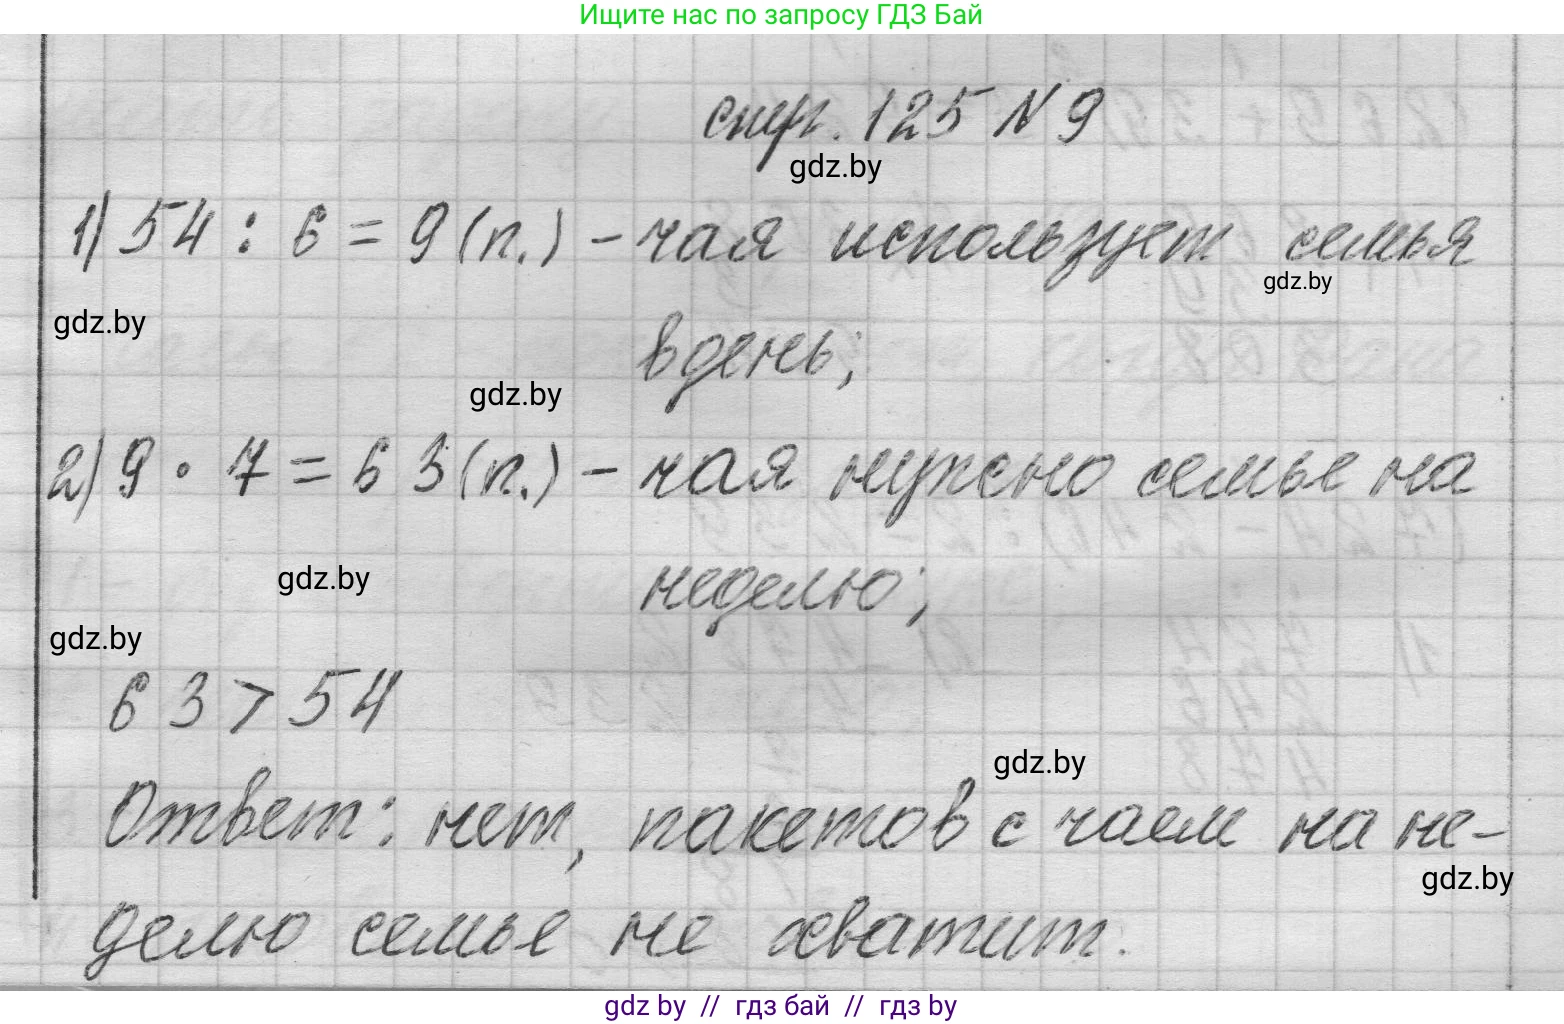 Ищите нас по запросу ГДЗ Бай
стр. 125 N 9
gdz.by
1) 54 : 6 = 9 (п.) - чая использует семья
gdz.by
gdz.by
в день;
gdz.by
2) 9 · 7 = 63 (п.) - чая нужно семье на
gdz.by
неделю;
gdz.by
63 > 54
gdz.by
Ответ: нет, пакетов с чаем на не-
gdz.by
делю семье не хватит.
gdz by // гдз бай // гдз by